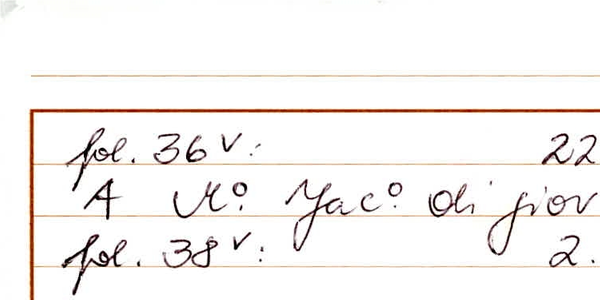 fol. 36v: 22
A Mo. Jaco. di giov
fol. 38v: 2.